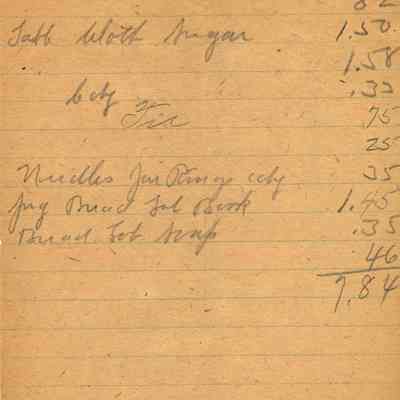 82
Tabb Cloth Sugar 1.50
1.58
Cdy .33
Tic 75
25
Needles Jar Rings cdy 35
Jug Bread Tob Book 1.45
Bread Tob Soap .35
46
7.84